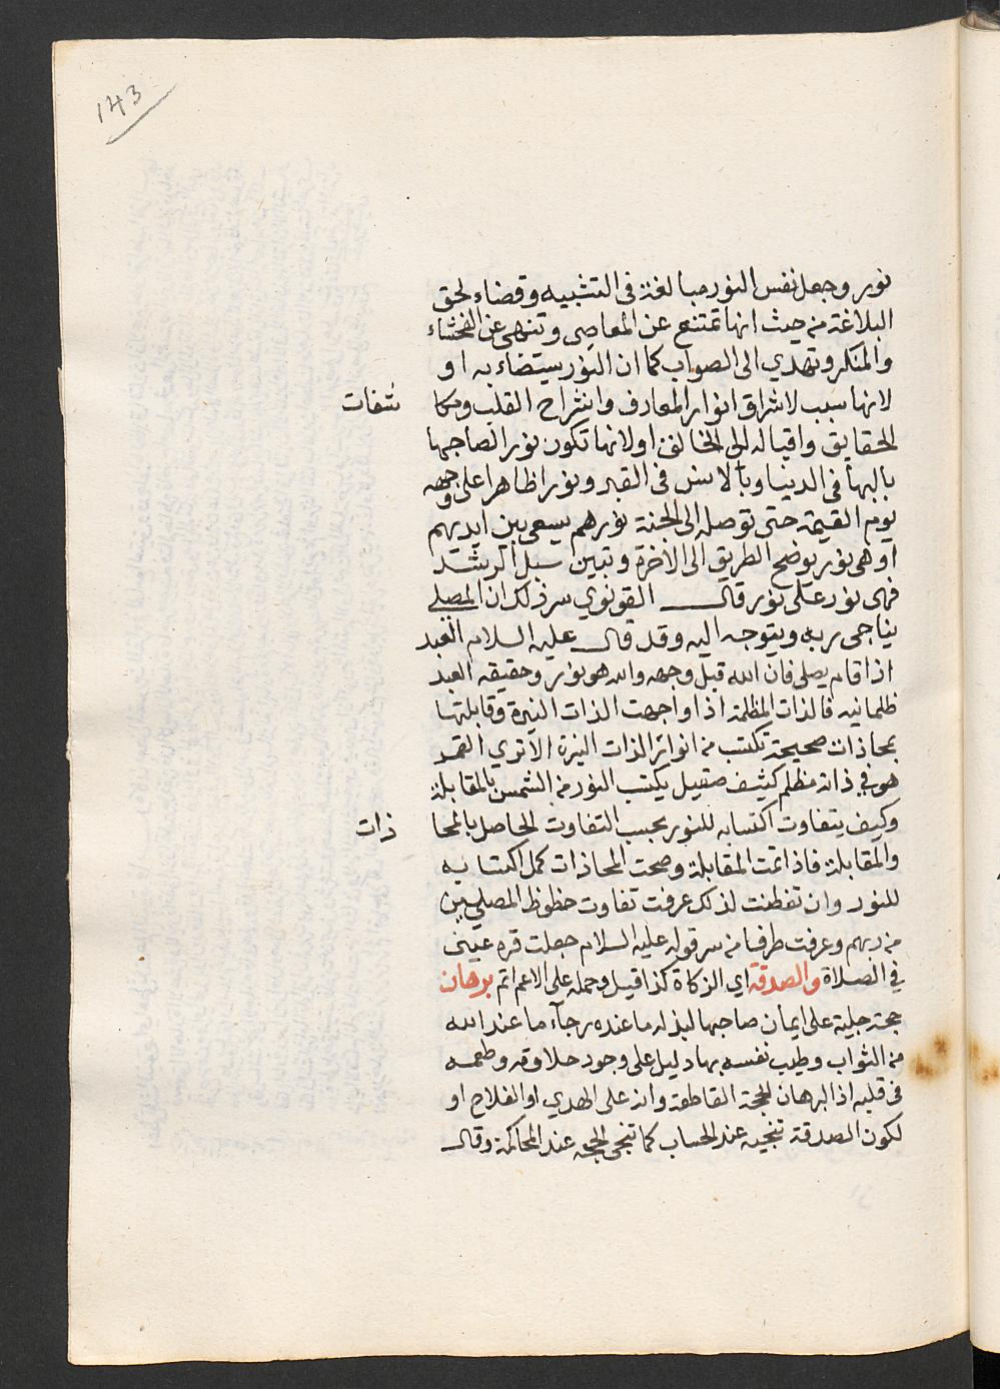 143
نور وجعل نفس النور مبالغة فى التشبيه وقضاء لحق
البلاغة من حيث انها تمتنع عن المعاصي وتنهى عن الفحشاء
والمنكر وتهدي الى الصواب كما ان النور يستضاء به او
لانها سبب لاشراق انوار المعارف وانشراح القلب ومكا شفات
الحقايق واقباله الى الخالق او لانها تكون نورا لصاحبها
بالبهأ فى الدنيا وبالانس فى القبر ونورا ظاهرا على وجهه
يوم القيمة حتى توصله الى الجنة نورهم يسعى بين ايديهم
او هى نور يوضح الطريق الى الآخرة وتبين سبل الرشد
فهى نور على نور قال القونوي سر ذلك ان المصلي
يناجى ربه ويتوجه اليه وقد قال عليه السلام العبد
اذا قام يصلى فان الله قبل وجهه والله هو نور وحقيقه العبد
ظلمانيه فالذات المظلمة اذا واجهت الذات النيرة وقابلتها
بمحاذات صحيحة تكتسب من انوار الذات النيرة الا تري القمر
هو في ذاته مظلم كثيف صقيل يكتسب النور من الشمس بالمقابلة
وكيف يتفاوت اكتسابه للنور بحسب التفاوت الحاصل بالمحا ذات
والمقابلة فاذا تمت المقابلة وصحت المحاذات كمل اكتسابه
للنور وان تفطنت لذلك عرفت تفاوت حظوظ المصليين
من ربهم وعرفت طرفا من سر قوله عليه السلام جعلت قره عينى
في الصلاة والصدقة اي الزكاة كذا قيل وحمله على الاعم اتم برهان
حجة جلية على ايمان صاحبها لبذله ما عنده رجآء ما عند الله
من الثواب وطيب نفسه بها دليل على وجود حلاوته وطعمه
فى قلبه اذ البرهان الحجة القاطعة وانه على الهدي او الفلاح او
لكون الصدقة تنجيه عند الحساب كما تنجى الحجه عند المحاكمة وقال